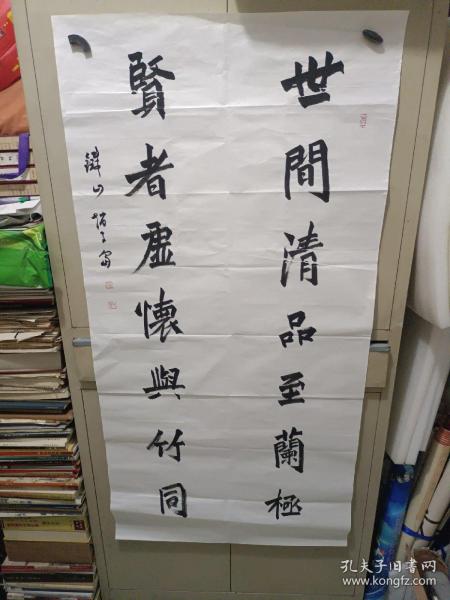 世間清品至蘭極
賢者虛懷與竹同
孔夫子旧书网
www.kongfz.com